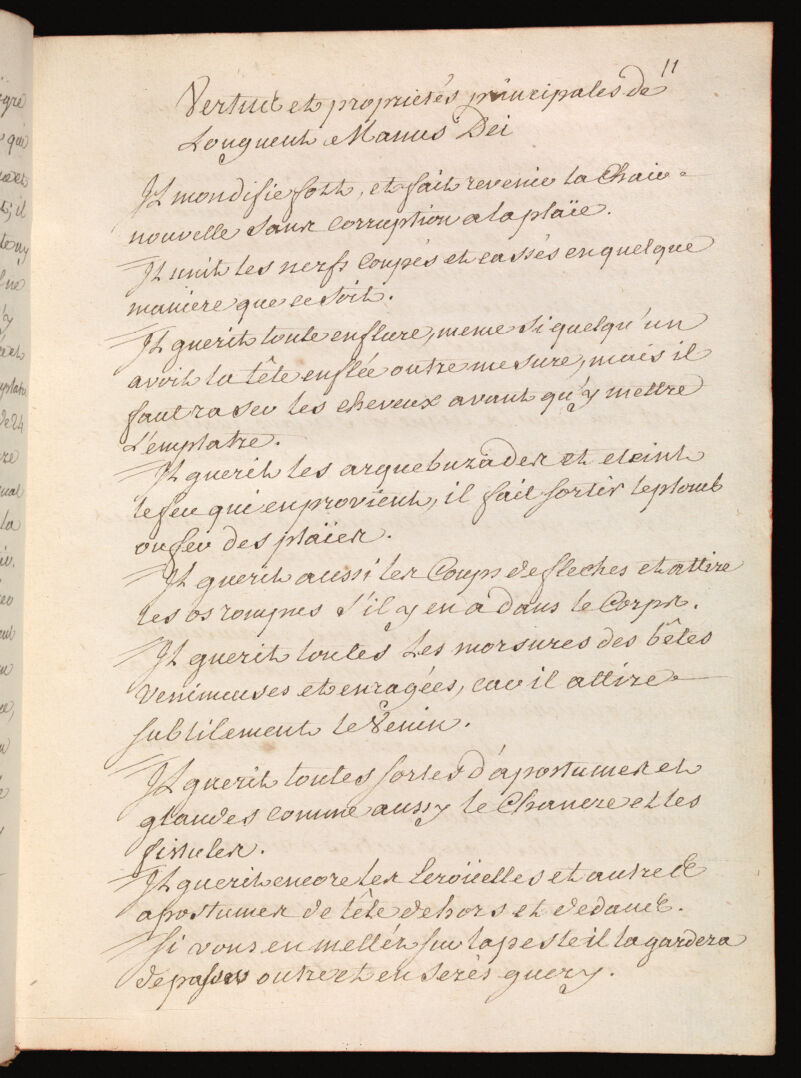 11
Vertus et propriétés principales de
Longuent Manus Dei
Il mondifie fort, et fait revenir la Chair
nouvelle sans corruption a la plaïe.
Il unit les nerfs coupés et cassés en quelque
maniere que ce soit.
Il guerit toute enflure, meme si quelqu'un
avoit la tête enflée outre mesure, mais il
faut raser les cheveux avant qu'y mettre
L'emplatre.
Il guerit les arquebuzades et eteint
le feu qui en provient, il fait sortir le plomb
ou fer des plaïes.
Il guerit aussi les Coups de fleches et attire
les os rompus s'il y en a dans le Corps.
Il guerit toutes Les morsures des bêtes
venimeuses et enragées, car il attire
subtilement le Venin.
Il guerit toutes sortes d'apostumes et
glandes comme aussy le Chancre et les
fistules.
Il guerit encore les Ecroüelles et autres
apostumes de tête dehors et dedans.
Si vous en mettés sur la peste il la gardera
de passer outre et en serés guery.